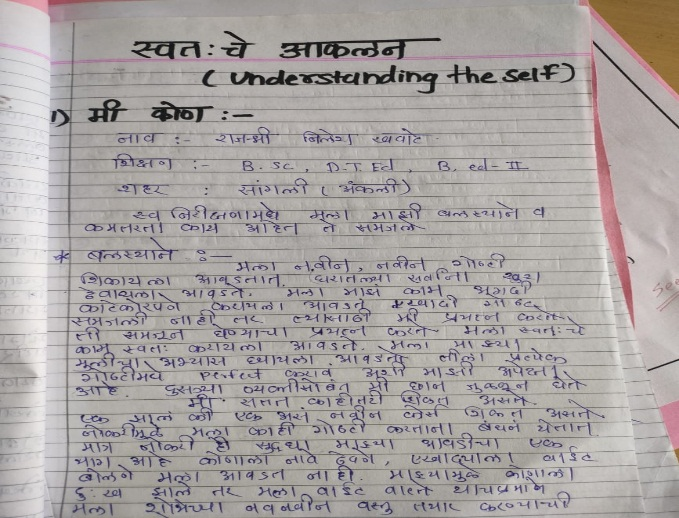 स्वतः चे आकलन
( Understanding the self )
1) मी कोण :-
नाव :- राजश्री निलेश खवाटे
शिक्षण :- B. sc, D.T. Ed, B. ed-II
शहर : सांगली ( अंकली )
स्व निरीक्षणामध्ये मला माझी बलस्थाने व
कमतरता काय आहेत ते समजले
* बलस्थाने :-
मला नवीन, नवीन गोष्टी
शिकायला आवडतात. घरातल्या सर्वांना खूश
ठेवायला आवडते. मला माझं काम अगदी
काटेकोरपणे करायला आवडते एखादी गोष्ट
समजली नाही तर त्यासाठी मी प्रयत्न करते
ती समजून घेण्याचा प्रयत्न करते मला स्वतः चे
काम स्वतः करायला आवडते. मला माझ्या
मुलीचा अभ्यास घ्यायला आवडतो तीला प्रत्येक
गोष्टीमध्ये perfect करावं अशी माझी अपेक्षा
आहे. दुसऱ्या व्यक्तींसोबत मी छान जुळवून घेते
मी सतत काहीतरी शिकत असते.
एक झालं की एक असं नवीन कोर्स शिकत असते
नोकरीमुळे मला काही गोष्टी करताना बंधने येतात
मात्र नोकरी ही सुद्धा माझ्या आवडीचा एक
भाग आहे कोणाला नावे ठेवणे, एखाद्याला वाईट
बोलणे मला आवडत नाही. माझ्यामुळे कोणाला
दुःख झाले तर मला वाईट वाटते याचप्रमाणे
मला शोभेच्या नवनवीन वस्तू तयार करण्याची